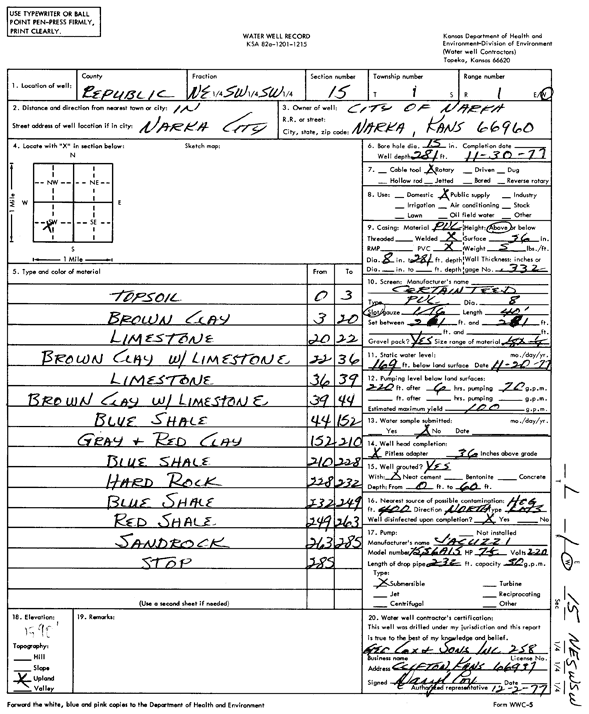 USE TYPEWRITER OR BALL
POINT PEN-PRESS FIRMLY,
PRINT CLEARLY.
WATER WELL RECORD
KSA 82a-1201-1215
Kansas Department of Health and
Environment-Division of Environment
(Water well Contractors)
Topeka, Kansas 66620
1. Location of well: County REPUBLIC Fraction NE 1/4 SW 1/4 SW 1/4 Section number 15 Township number T 1 S Range number R 1 E/W
2. Distance and direction from nearest town or city: IN
Street address of well location if in city: NARKA CITY
3. Owner of well: CITY OF NARKA
R.R. or street:
City, state, zip code: NARKA, KANS 66960
4. Locate with "X" in section below: Sketch map:
N
NW NE
W E
SW SE
S
1 Mile
1 Mile
6. Bore hole dia. 15 in. Completion date
Well depth 281 ft. 11-30-77
7. Cable tool X Rotary Driven Dug
Hollow rod Jetted Bored Reverse rotary
8. Use: Domestic X Public supply Industry
Irrigation Air conditioning Stock
Lawn Oil field water Other
9. Casing: Material PVC Height: Above or below
Threaded Welded X Surface 36 in.
RMP PVC X Weight 5 lbs./ft.
Dia. 8 in. to 281 ft. depth Wall Thickness: inches or
Dia. in. to ft. depth gage No. .332
10. Screen: Manufacturer's name
CERTAIN TEED
Type PVC Dia. 8
Slot/gauze 1/16 Length 40'
Set between ft. and ft.
ft. and ft.
Gravel pack? YES Size range of material
11. Static water level: mo./day/yr.
169 ft. below land surface Date 11-20-77
12. Pumping level below land surfaces:
220 ft. after 6 hrs. pumping 70 g.p.m.
ft. after hrs. pumping g.p.m.
Estimated maximum yield 100 g.p.m.
13. Water sample submitted: mo./day/yr.
Yes X No Date
14. Well head completion:
X Pitless adapter 36 Inches above grade
15. Well grouted? YES
With: X Neat cement Bentonite Concrete
Depth: From 0 ft. to 60 ft.
16. Nearest source of possible contamination: HOG
ft. 400 Direction NORTH Type LOTS
Well disinfected upon completion? X Yes No
17. Pump: Not installed
Manufacturer's name JACUZZI
Model number HP Volts 220
Length of drop pipe ft. capacity 50 g.p.m.
Type:
X Submersible Turbine
Jet Reciprocating
Centrifugal Other
5. Type and color of material From To
TOPSOIL 0 3
BROWN CLAY 3 20
LIMESTONE 20 22
BROWN CLAY W/ LIMESTONE 22 36
LIMESTONE 36 39
BROWN CLAY W/ LIMESTONE 39 44
BLUE SHALE 44 152
GRAY + RED CLAY 152 210
BLUE SHALE 210 228
HARD ROCK 228 232
BLUE SHALE 232 249
RED SHALE 249 263
SANDROCK 263 285
STOP 285
(Use a second sheet if needed)
18. Elevation:
Topography:
Hill
Slope
X Upland
Valley
19. Remarks:
20. Water well contractor's certification:
This well was drilled under my jurisdiction and this report
is true to the best of my knowledge and belief.
GEO COX + SONS INC 258
Business name License No.
Address CLIFTON, KANS 66937
Signed
Authorized representative 12-2-77
Forward the white, blue and pink copies to the Department of Health and Environment Form WWC-5
T 1 1 W E
Sec 15 NE SW SW
1/4 1/4 1/4